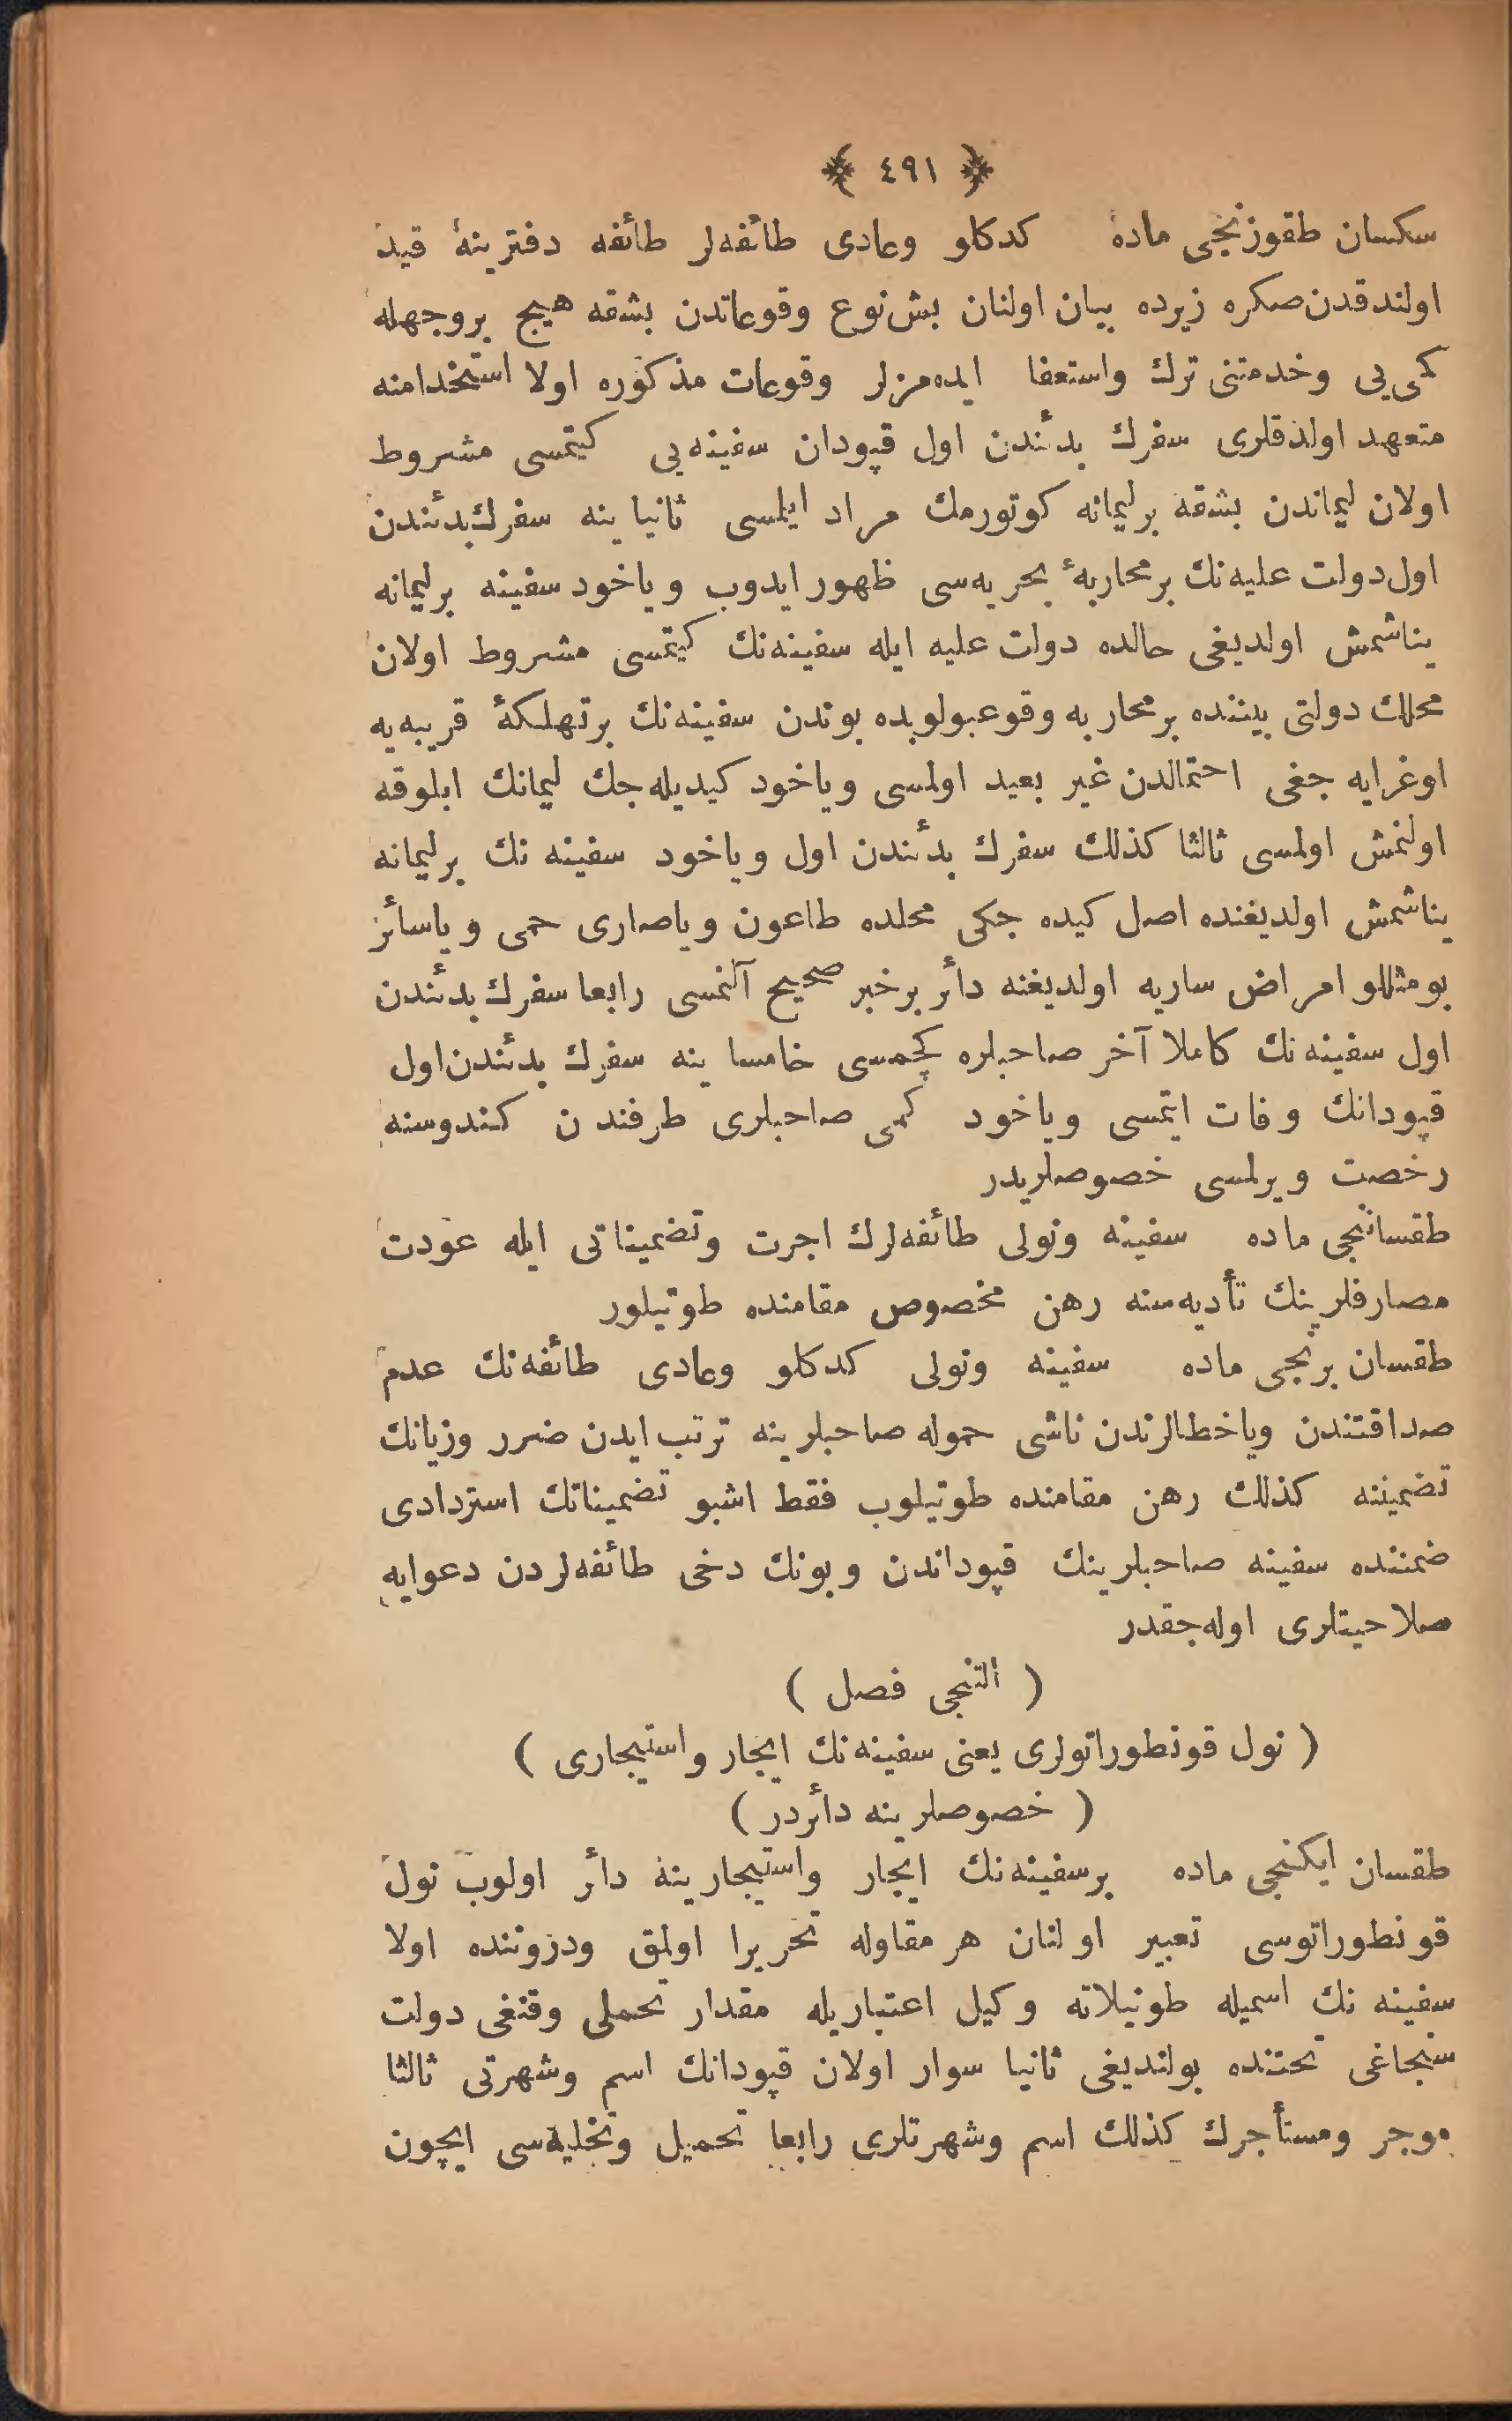 ﴿ ٤٩١ ﴾
سكسان طقوزنجی ماده كدكلو وعادی طائفه‌لر طائفه دفترینه قید
اولندقدن‌صكره زیرده بیان اولنان بش‌نوع وقوعاتدن بشقه هیچ بروجهله
كمی‌یی وخدمتنی ترك واستعفا ایده‌مزلر وقوعات مذكوره اولا استخدامنه
متعهد اولدقلری سفرك بدئندن اول قپودان سفینه‌یی كیتمسی مشروط
اولان لیماندن بشقه برلیمانه كوتورمك مراد ایلمسی ثانیا ینه سفرك‌بدئندن
اول‌دولت علیه‌نك برمحاربهٔ بحریه‌سی ظهور ایدوب ویاخود سفینه برلیمانه
یناشمش اولدیغی حالده دولت علیه ایله سفینه‌نك كیتمسی مشروط اولان
محلك دولتی بیننده برمحاربه وقوعبولوبده بوندن سفینه‌نك برتهلكهٔ قریبه‌یه
اوغرایه جغی احتمالدن غیر بعید اولمسی ویاخود كیدیله‌جك لیمانك ابلوقه
اولنمش اولمسی ثالثا كذلك سفرك بدئندن اول ویاخود سفینه نك برلیمانه
یناشمش اولدیغنده اصل كیده جكی محلده طاعون ویاصاری حمی ویاسائر
بومثللو امراض ساریه اولدیغنه دائر برخبر صحیح آلنمسی رابعا سفرك بدئندن
اول سفینه نك كاملا آخر صاحبلره كچمسی خامسا ینه سفرك بدئندن‌اول
قپودانك وفات ایتمسی ویاخود كمی صاحبلری طرفندن كندوسنه
رخصت ویرلمسی خصوصلریدر
طقساننجی ماده سفینه ونولی طائفه‌لرك اجرت وتضمیناتی ایله عودت
مصارفلرینك تأدیه‌سنه رهن مخصوص مقامنده طوتیلور
طقسان برنجی ماده سفینه ونولی كدكلو وعادی طائفه‌نك عدم
صداقتندن ویاخطالرندن ناشی حموله صاحبلرینه ترتب ایدن ضرر وزیانك
تضمیننه كذلك رهن مقامنده طوتیلوب فقط اشبو تضمیناتك استردادی
ضمننده سفینه صاحبلرینك قپوداندن وبونك دخی طائفه‌لردن دعوایه
صلاحیتلری اوله‌جقدر
( التنجی فصل )
( نول قونطوراتولری یعنی سفینه‌نك ایجار واستیجاری )
( خصوصلرینه دائردر )
طقسان ایكنجی ماده برسفینه‌نك ایجار واستیجارینه دائر اولوب نول
قونطوراتوسی تعبیر اولنان هر مقاوله تحریرا اولمق ودروننده اولا
سفینه نك اسمیله طونیلاته وكیل اعتباریله مقدار تحملی وقنغی دولت
سنجاغی تحتنده بولندیغی ثانیا سوار اولان قپودانك اسم وشهرتی ثالثا
موجر ومستأجرك كذلك اسم وشهرتلری رابعا تحمیل وتخلیه‌سی ایچون